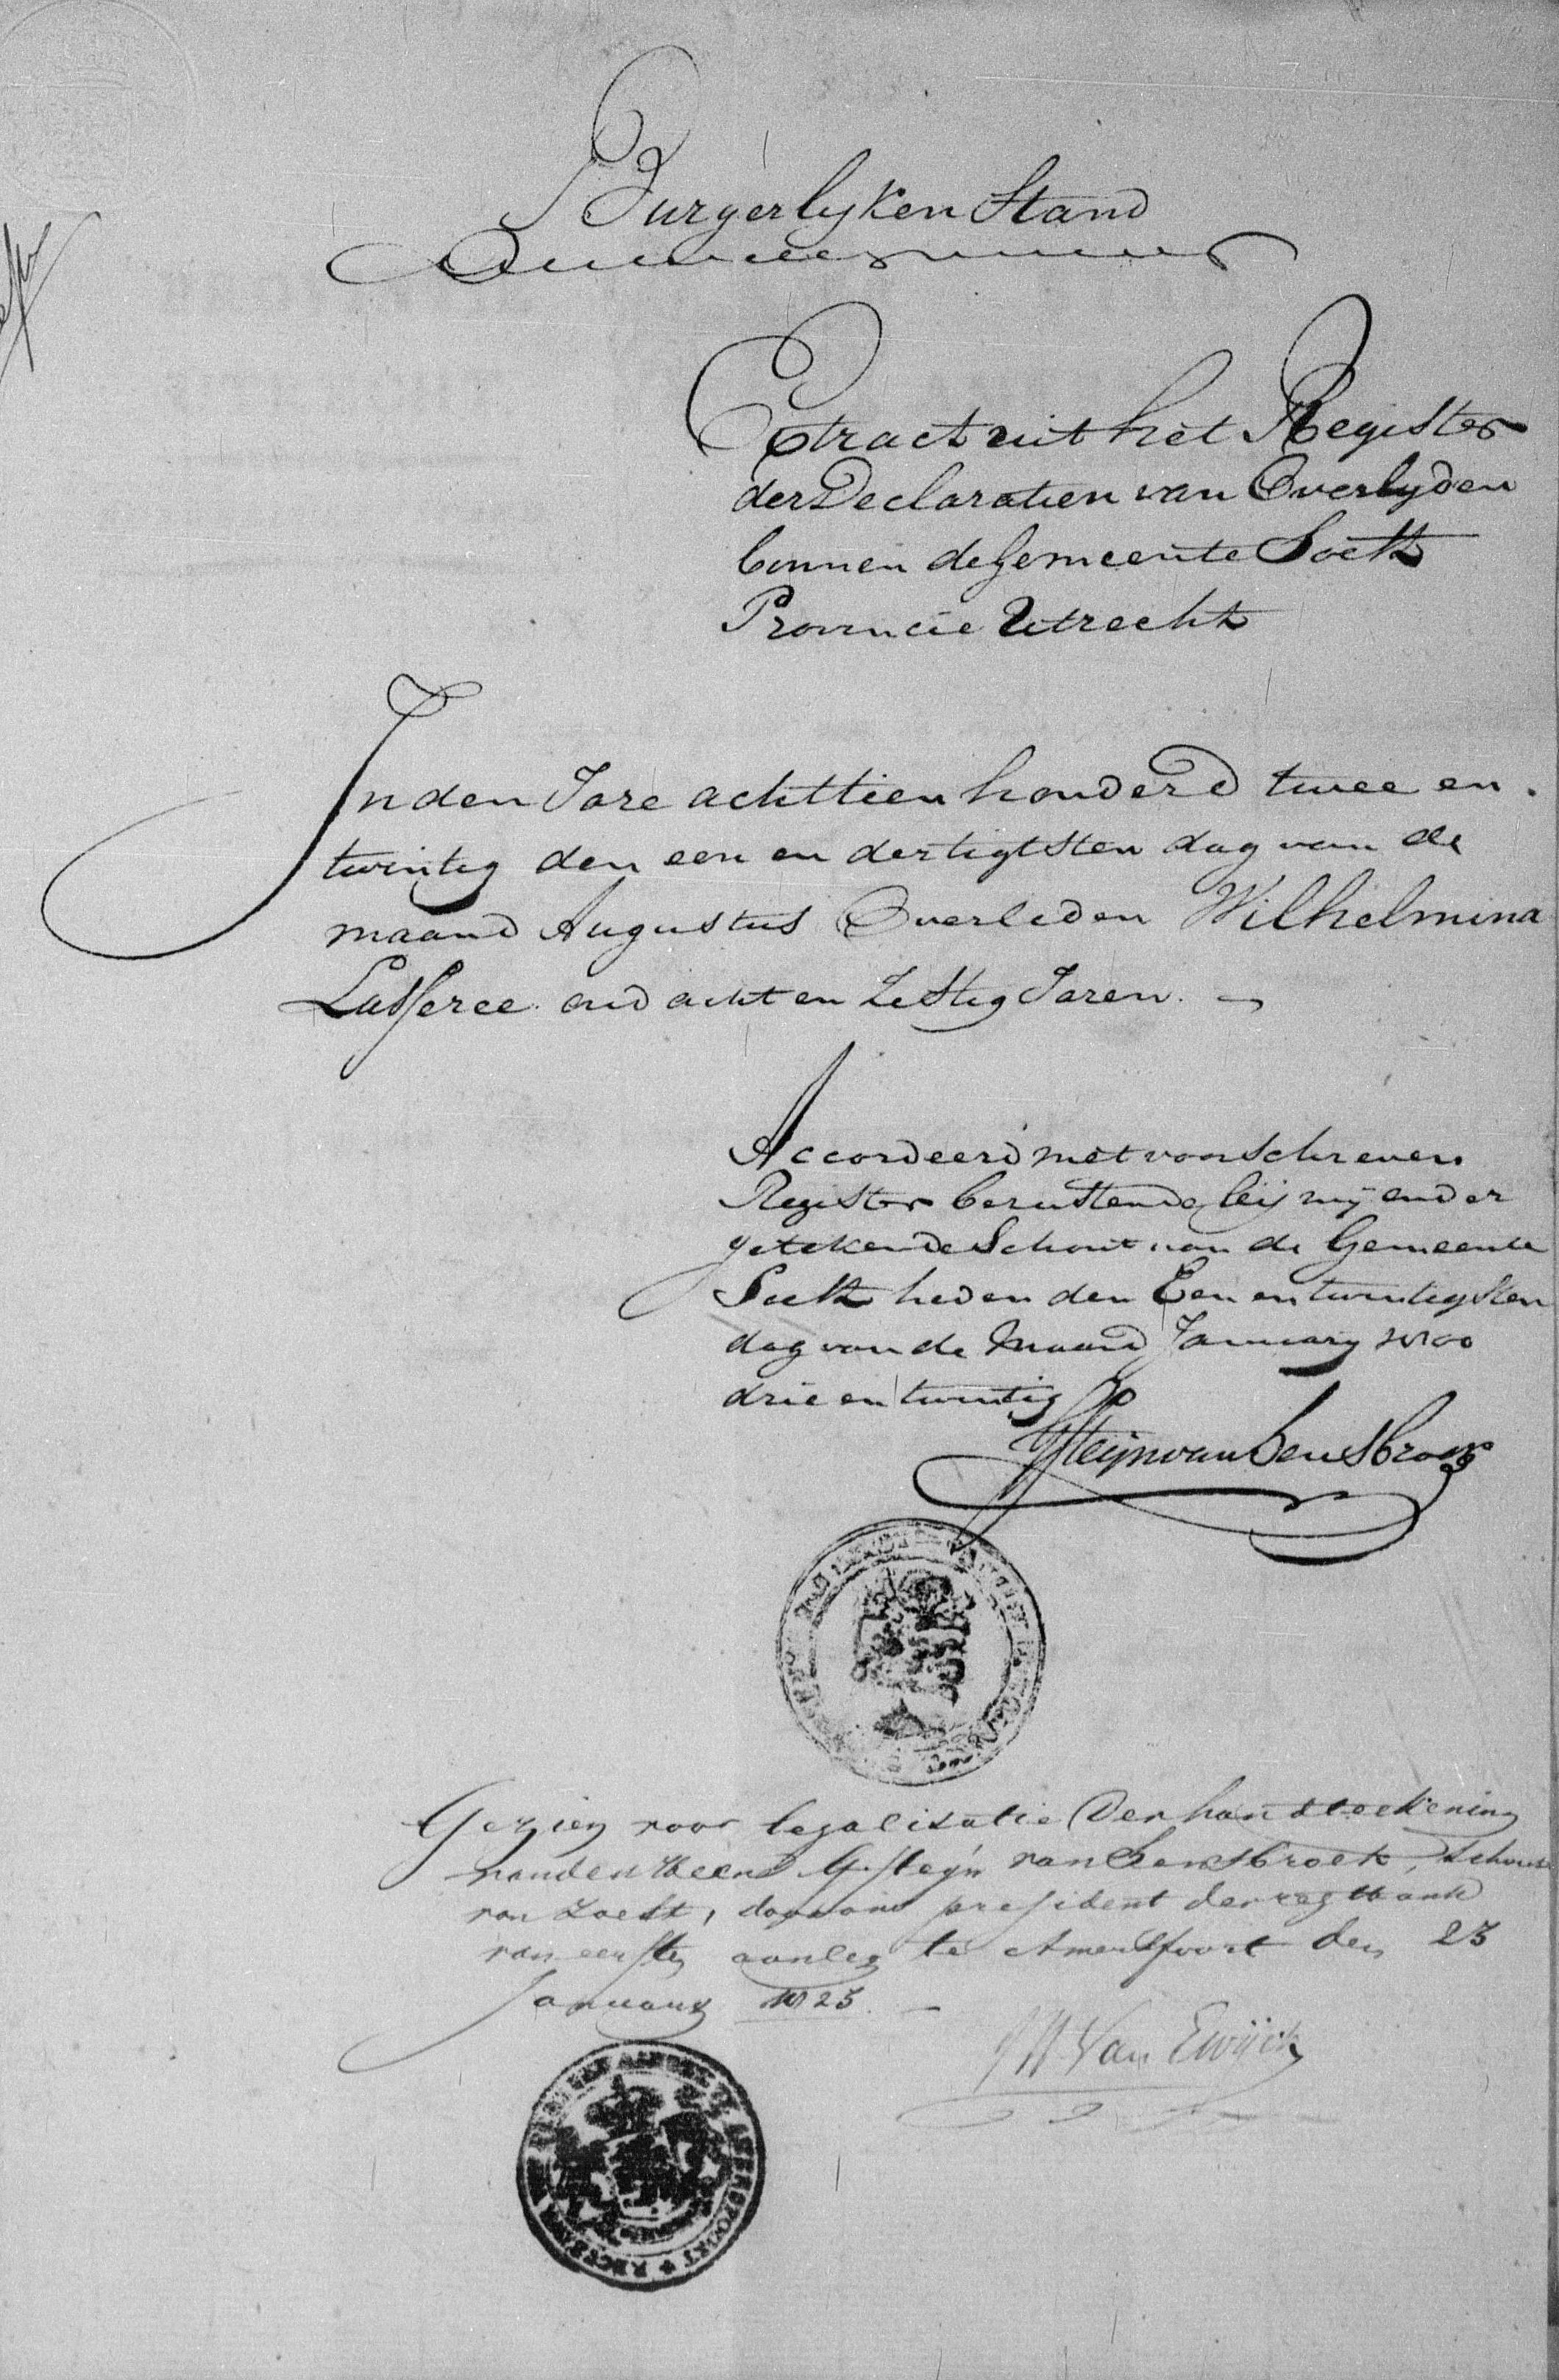 Burgerlyken Stand
Extract uit het Register
der Declaratien van Overlyden
binnen de Gemeente Soest
Provincie Utrecht
In den Jare achttien honderd twee en
twintig den een en dertigtsten dag van de
maand Augustus Overleden Wilhelmina
Lasseree oud acht en Zestig Jaren.
Accordeerd met voorschreven
Register berustende bij mij onder
getekende Schout van de Gemeente
Soest heden den Een en twintigsten
dag van de Maand January 1800
drie en twintig
Steijn van Hensbroek
Gezien voor legalisatie der handteekening
van den Heer G. Steijn van Hensbroek, Schout
van Zoest, door ons president der regtbank
van eersten aanleg te Amersfoort den 23
January 1823.
Van Ewijck
AMERSFOORT